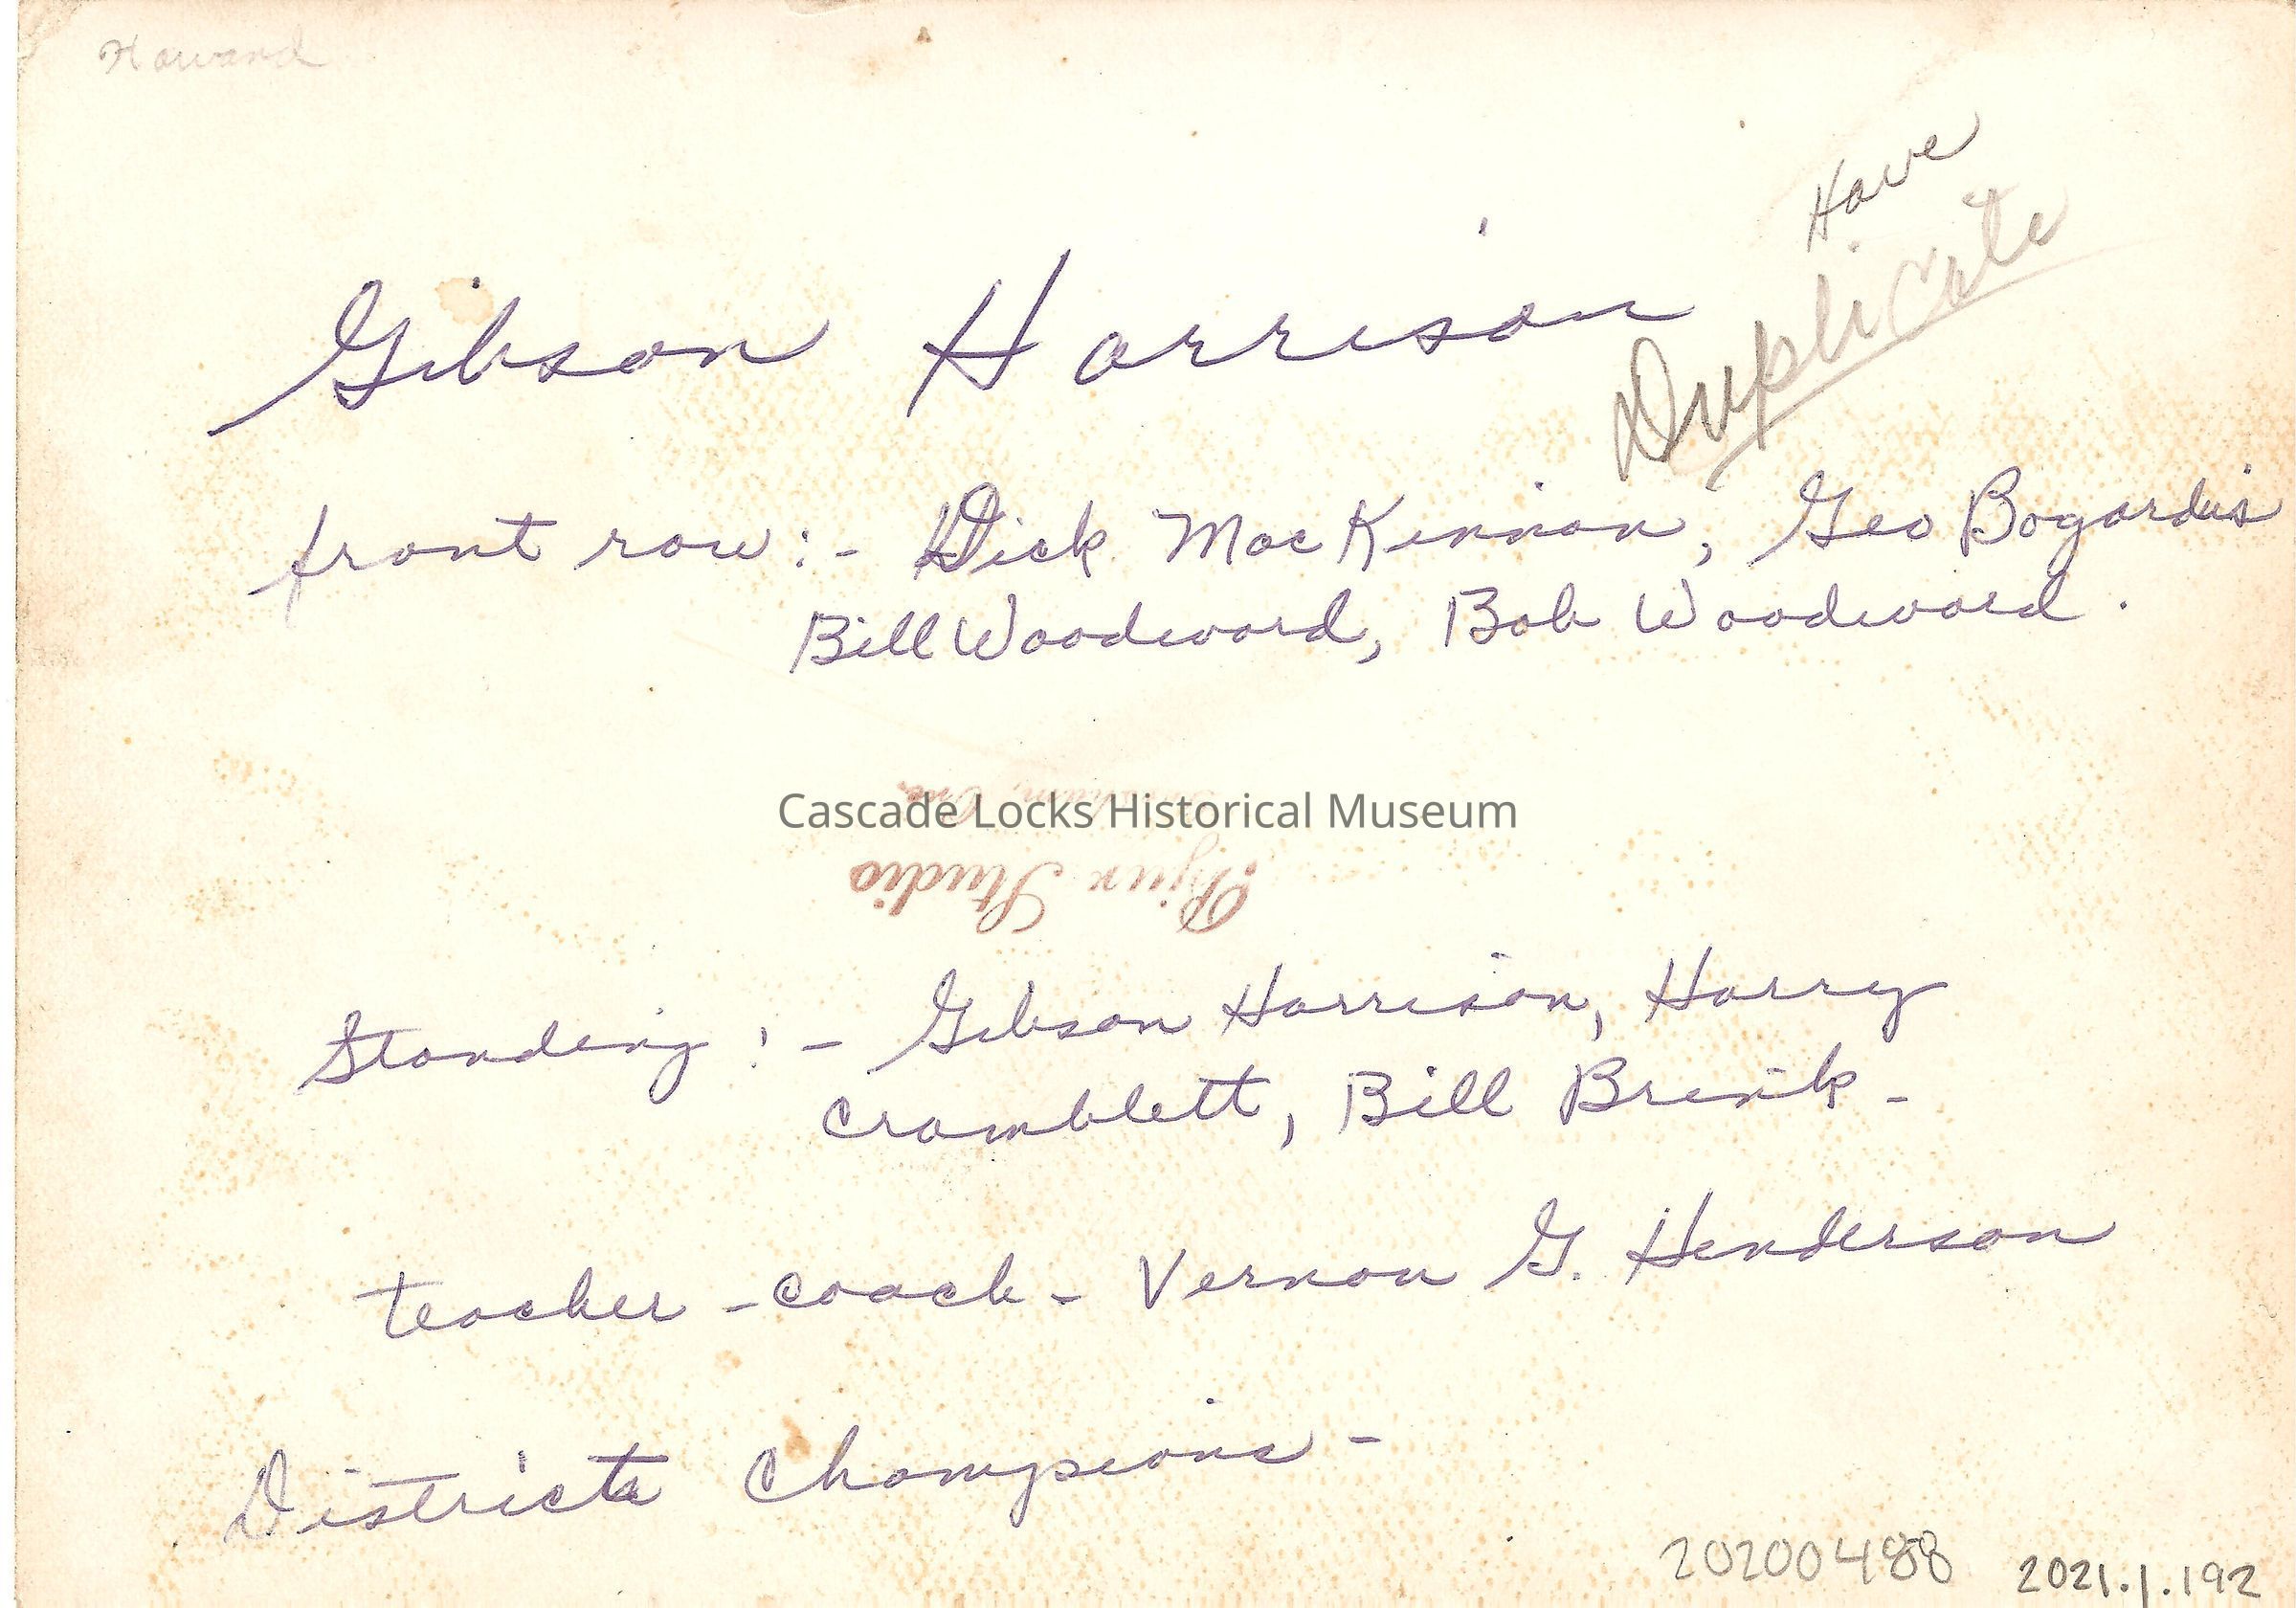 Howard
Have
Duplicate
Gibson Harrison
front row:- Dick MacKinnon, Geo Bogardus
Bill Woodward, Bob Woodward.
Cascade Locks Historical Museum
Ore.
Studio
Standing:- Gibson Harrison, Harry
Cramblett, Bill Brink-
teacher-coach- Vernon G. Henderson
District Champions-
20200488
2021.1.192